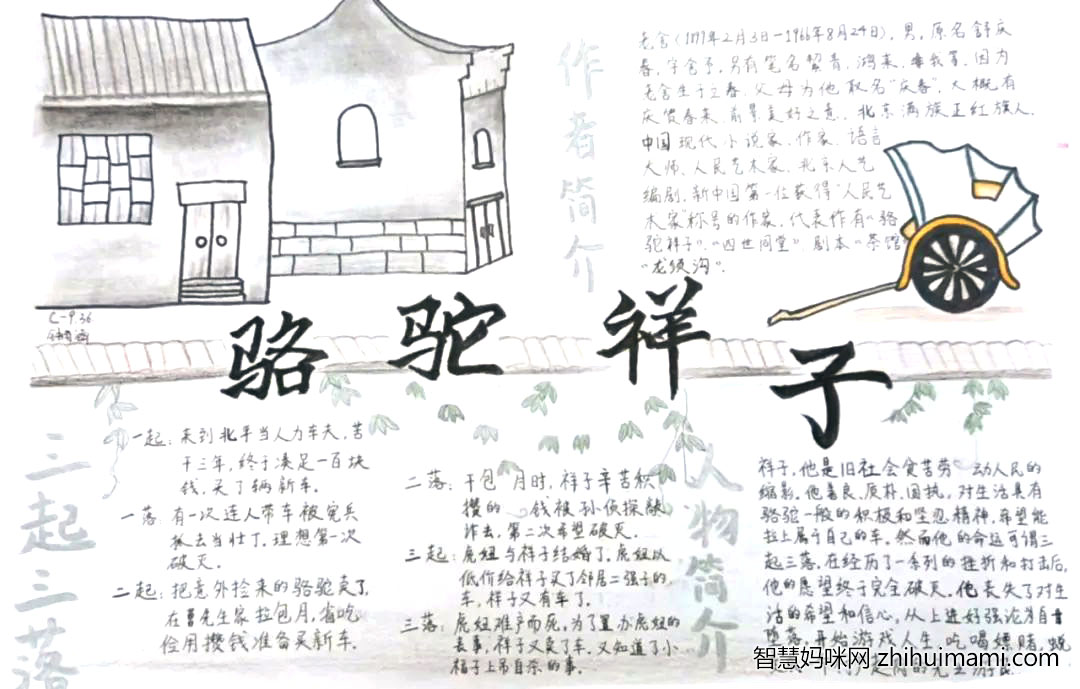 作者简介
老舍(1899年2月3日—1966年8月24日),男,原名舒庆
春,字舍予,另有笔名絜青、鸿来、非我等,因为
老舍生于立春,父母为他取名"庆春",大概有
庆贺春来、前景美好之意。北京满族正红旗人。
中国现代小说家、作家、语言
大师、人民艺术家、北京人艺
编剧,新中国第一位获得"人民艺
术家"称号的作家。代表作有"骆
驼祥子"、"四世同堂"、剧本"茶馆"
"龙须沟"。
C-9.36
骆驼祥子
三起三落
一起:来到北平当人力车夫,苦
干三年,终于凑足一百块
钱,买了辆新车。
一落:有一次连人带车被宪兵
抓去当壮丁。理想第一次
破灭。
二起:把意外捡来的骆驼卖了,
在曹先生家拉包月,省吃
俭用攒钱准备买新车。
二落:干包月时,祥子辛苦积
攒的钱被孙侦探
诈去,第二次希望破灭。
三起:虎妞与祥子结婚了,虎妞以
低价给祥子买了邻居二强子的
车,祥子又有车了。
三落:虎妞难产而死,为了置办虎妞的
丧事,祥子又卖了车。又知道了小
福子上吊自杀的事。
人物简介
祥子,他是旧社会贫苦劳动人民的
缩影。他善良、质朴、固执,对生活具有
骆驼一般的积极和坚忍精神,希望能
拉上属于自己的车。然而他的命运可谓三
起三落,在经历了一系列的挫折和打击后,
他的愿望终于完全破灭。他丧失了对生
活的希望和信心,从上进好强沦为自甘
堕落,开始游戏人生,吃喝嫖赌,
智慧妈咪网 zhihuimami.com